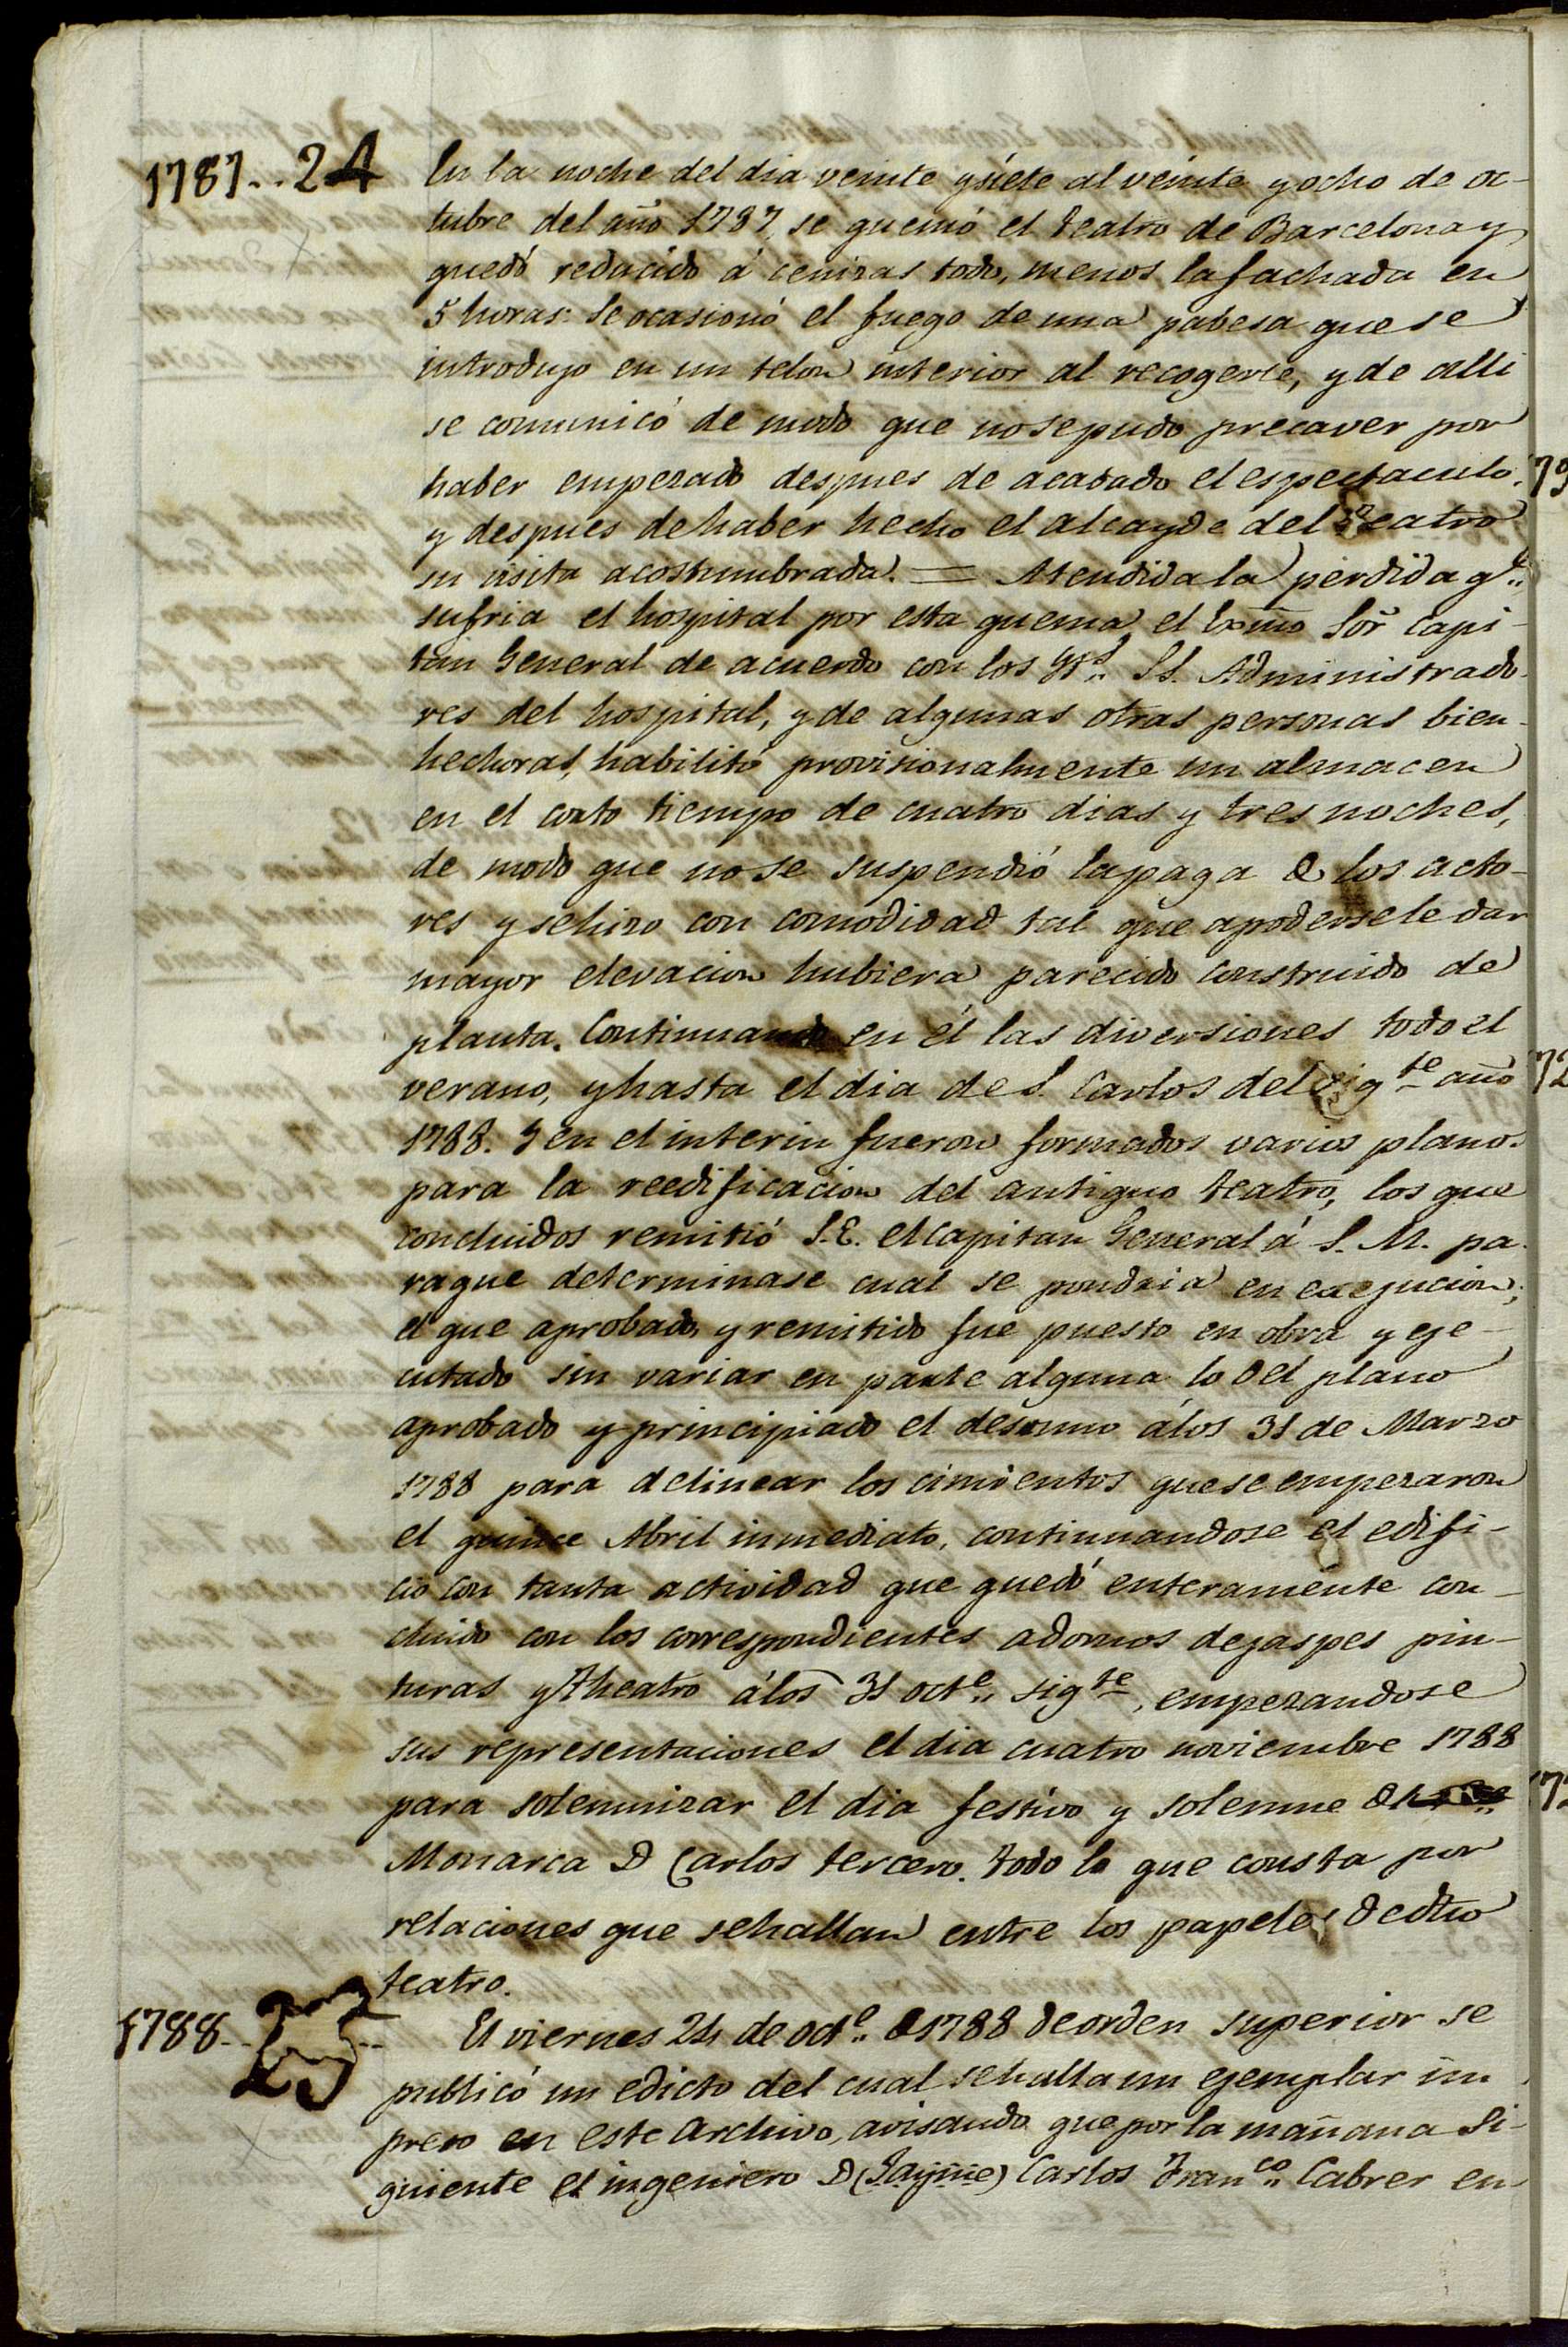 1787..24
En la noche del dia veinte y siete al veinte y ocho de oc-
tubre del año 1787, se quemó el teatro de Barcelona y
quedó reducido á cenizas todo, menos la fachada en
5 horas. Se ocasionó el fuego de una pabesa que se
introdujo en un telon interior al recogerle, y de alli
se comunicó de modo que no se pudo precaver por
haber empezado despues de acabado el espectaculo,
y despues de haber hecho el alcayde del teatro
su visita acostumbrada. = Atendida la perdida q.e
sufria el hospital por esta quema, el Exmo Sor Capi-
tan General de acuerdo con los SS. Administrado-
res del hospital, y de algunas otras personas bien-
hechoras, habilitó provisionalmente un almacen
en el corto tiempo de cuatro dias y tres noches,
de modo que no se suspendió la paga de los acto-
res y se hizo con comodidad tal que a podersele dar
mayor elevacion hubiera parecido construido de
planta. Continuando en él las diversiones todo el
verano, y hasta el dia de S. Carlos del sigte año
1788. Y en el interin fueron formados varios planos
para la reedificacion del antiguo teatro, los que
concluidos remitió S.E. el Capitan General á S. M. pa-
raque determinase cual se pondria en execucion;
el que aprobado, y remitido fue puesto en obra y eje-
cutado sin variar en parte alguna lo del plano
aprobado y principiado el desmonte á los 31 de Marzo
1788 para delinear los cimientos que se empezaron
el quince Abril inmediato, continuandose el edifi-
cio con tanta actividad que quedó enteramente con-
cluido con los correspondientes adornos de jaspes pin-
turas y theatro á los 31 octe,, sigte, empezandose
sus representaciones el dia cuatro noviembre 1788
para solemnizar el dia festivo y solemne del
Monarca D Carlos tercero. Todo lo que consta por
relaciones que se hallan entre los papeles de dho
teatro.
1788..25..
El viernes 24 de octe.. de 1788 de orden superior se
publicó un edicto del cual se halla un ejemplar im
preso en este Archivo, avisando que por la mañana si-
guiente el ingeniero D (Jayme) Carlos Franco.. Cabrer en-